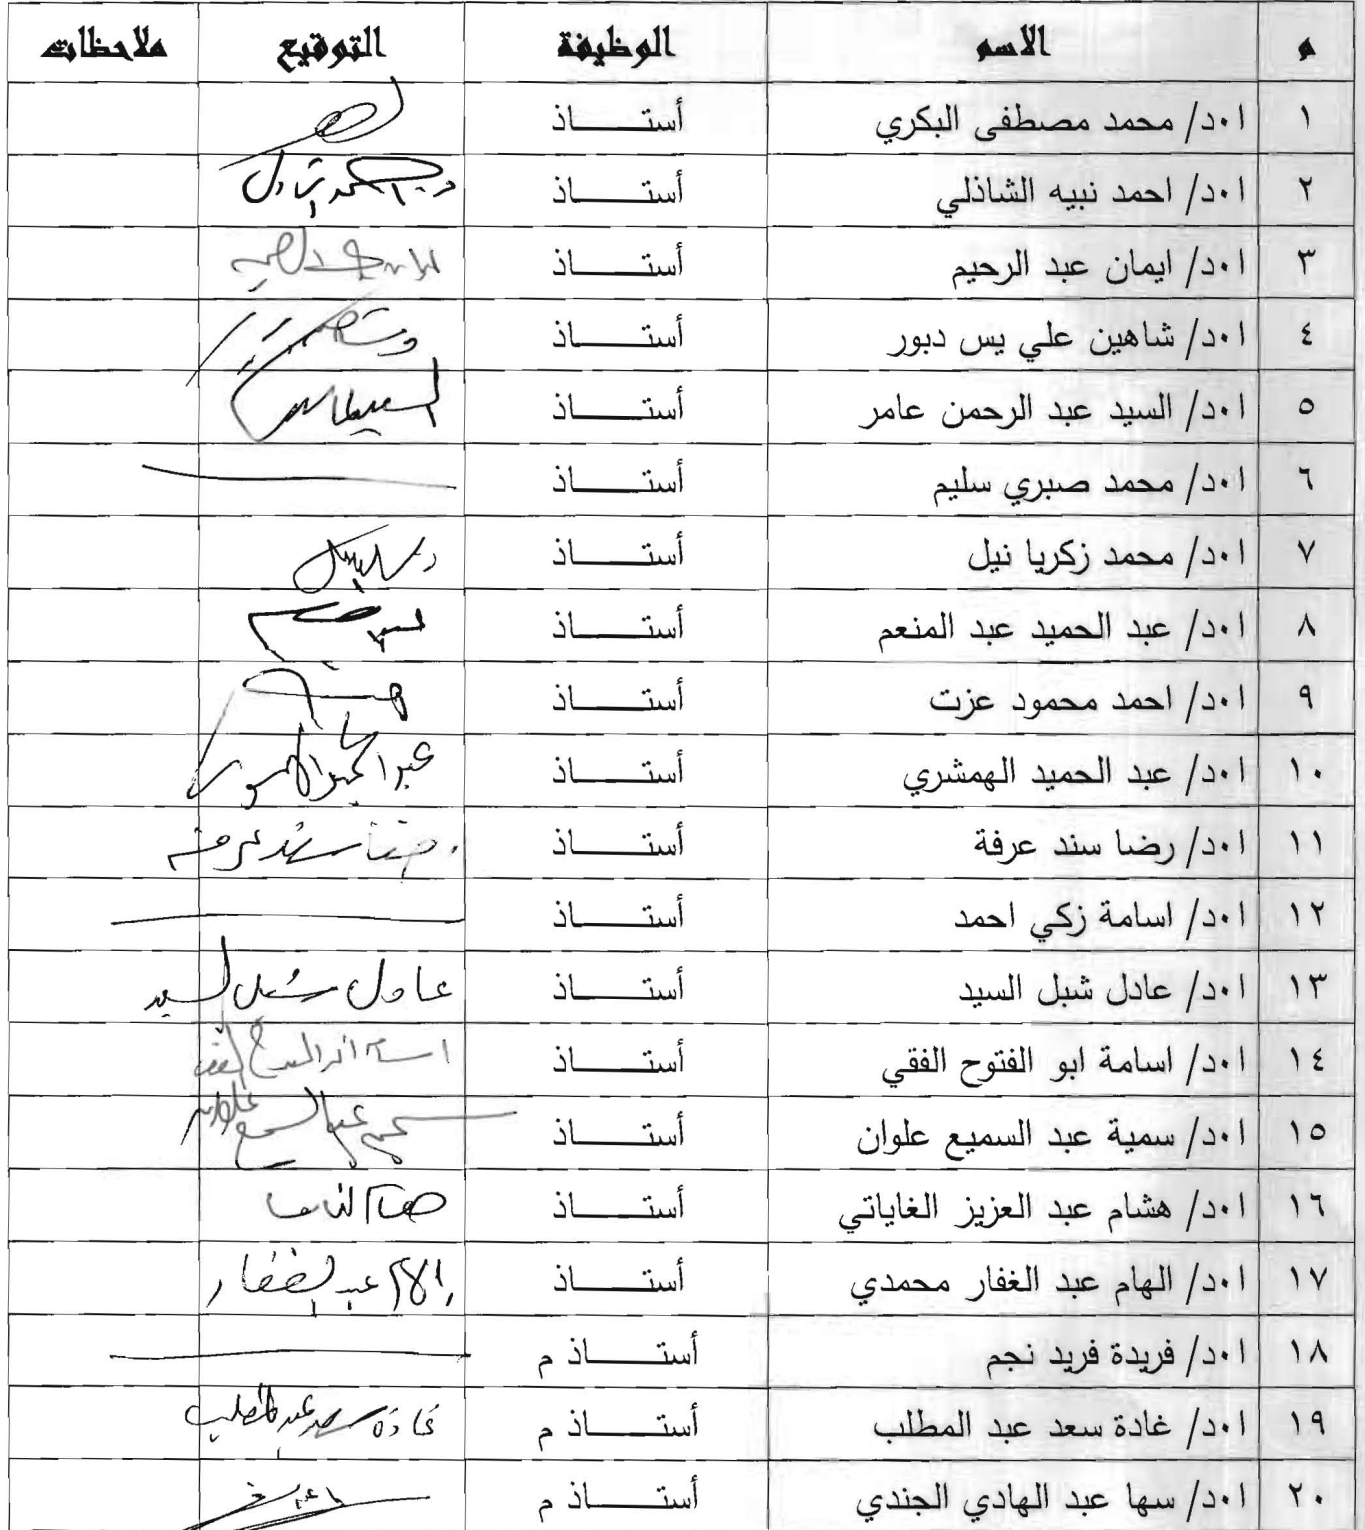 م الاسم الوظيفة التوقيع ملاحظات
١ ا٠د/ محمد مصطفى البكري أستــــاذ
٢ ا٠د/ احمد نبيه الشاذلي أستــــاذ
٣ ا٠د/ ايمان عبد الرحيم أستــــاذ
٤ ا٠د/ شاهين علي يس دبور أستــــاذ
٥ ا٠د/ السيد عبد الرحمن عامر أستــــاذ
٦ ا٠د/ محمد صبري سليم أستــــاذ
٧ ا٠د/ محمد زكريا نيل أستــــاذ
٨ ا٠د/ عبد الحميد عبد المنعم أستــــاذ
٩ ا٠د/ احمد محمود عزت أستــــاذ
١٠ ا٠د/ عبد الحميد الهمشري أستــــاذ
١١ ا٠د/ رضا سند عرفة أستــــاذ رضا سند عرفة
١٢ ا٠د/ اسامة زكي احمد أستــــاذ
١٣ ا٠د/ عادل شبل السيد أستــــاذ عادل شبل السيد
١٤ ا٠د/ اسامة ابو الفتوح الفقي أستــــاذ
١٥ ا٠د/ سمية عبد السميع علوان أستــــاذ سمية عبد السميع علوان
١٦ ا٠د/ هشام عبد العزيز الغاياتي أستــــاذ
١٧ ا٠د/ الهام عبد الغفار محمدي أستــــاذ إلهام عبد الغفار
١٨ ا٠د/ فريدة فريد نجم أستــــاذ م
١٩ ا٠د/ غادة سعد عبد المطلب أستــــاذ م غادة سعد عبد المطلب
٢٠ ا٠د/ سها عبد الهادي الجندي أستــــاذ م